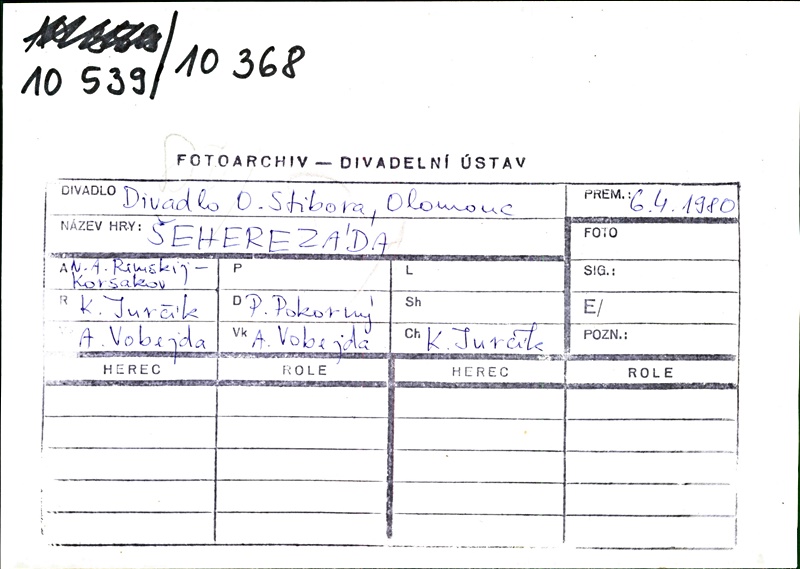 10 539/10 368
FOTOARCHIV — DIVADELNÍ ÚSTAV
DIVADLO Divadlo O. Stibora, Olomouc PREM.: 6.4.1980
NÁZEV HRY: ŠEHEREZÁDA FOTO
A N. A. Rimskij- P L SIG.:
Korsakov
R K. Jurčík D P. Pokorný Sh E/
A. Vobejda Vk A. Vobejda Ch K. Jurčík POZN.:
HEREC ROLE HEREC ROLE